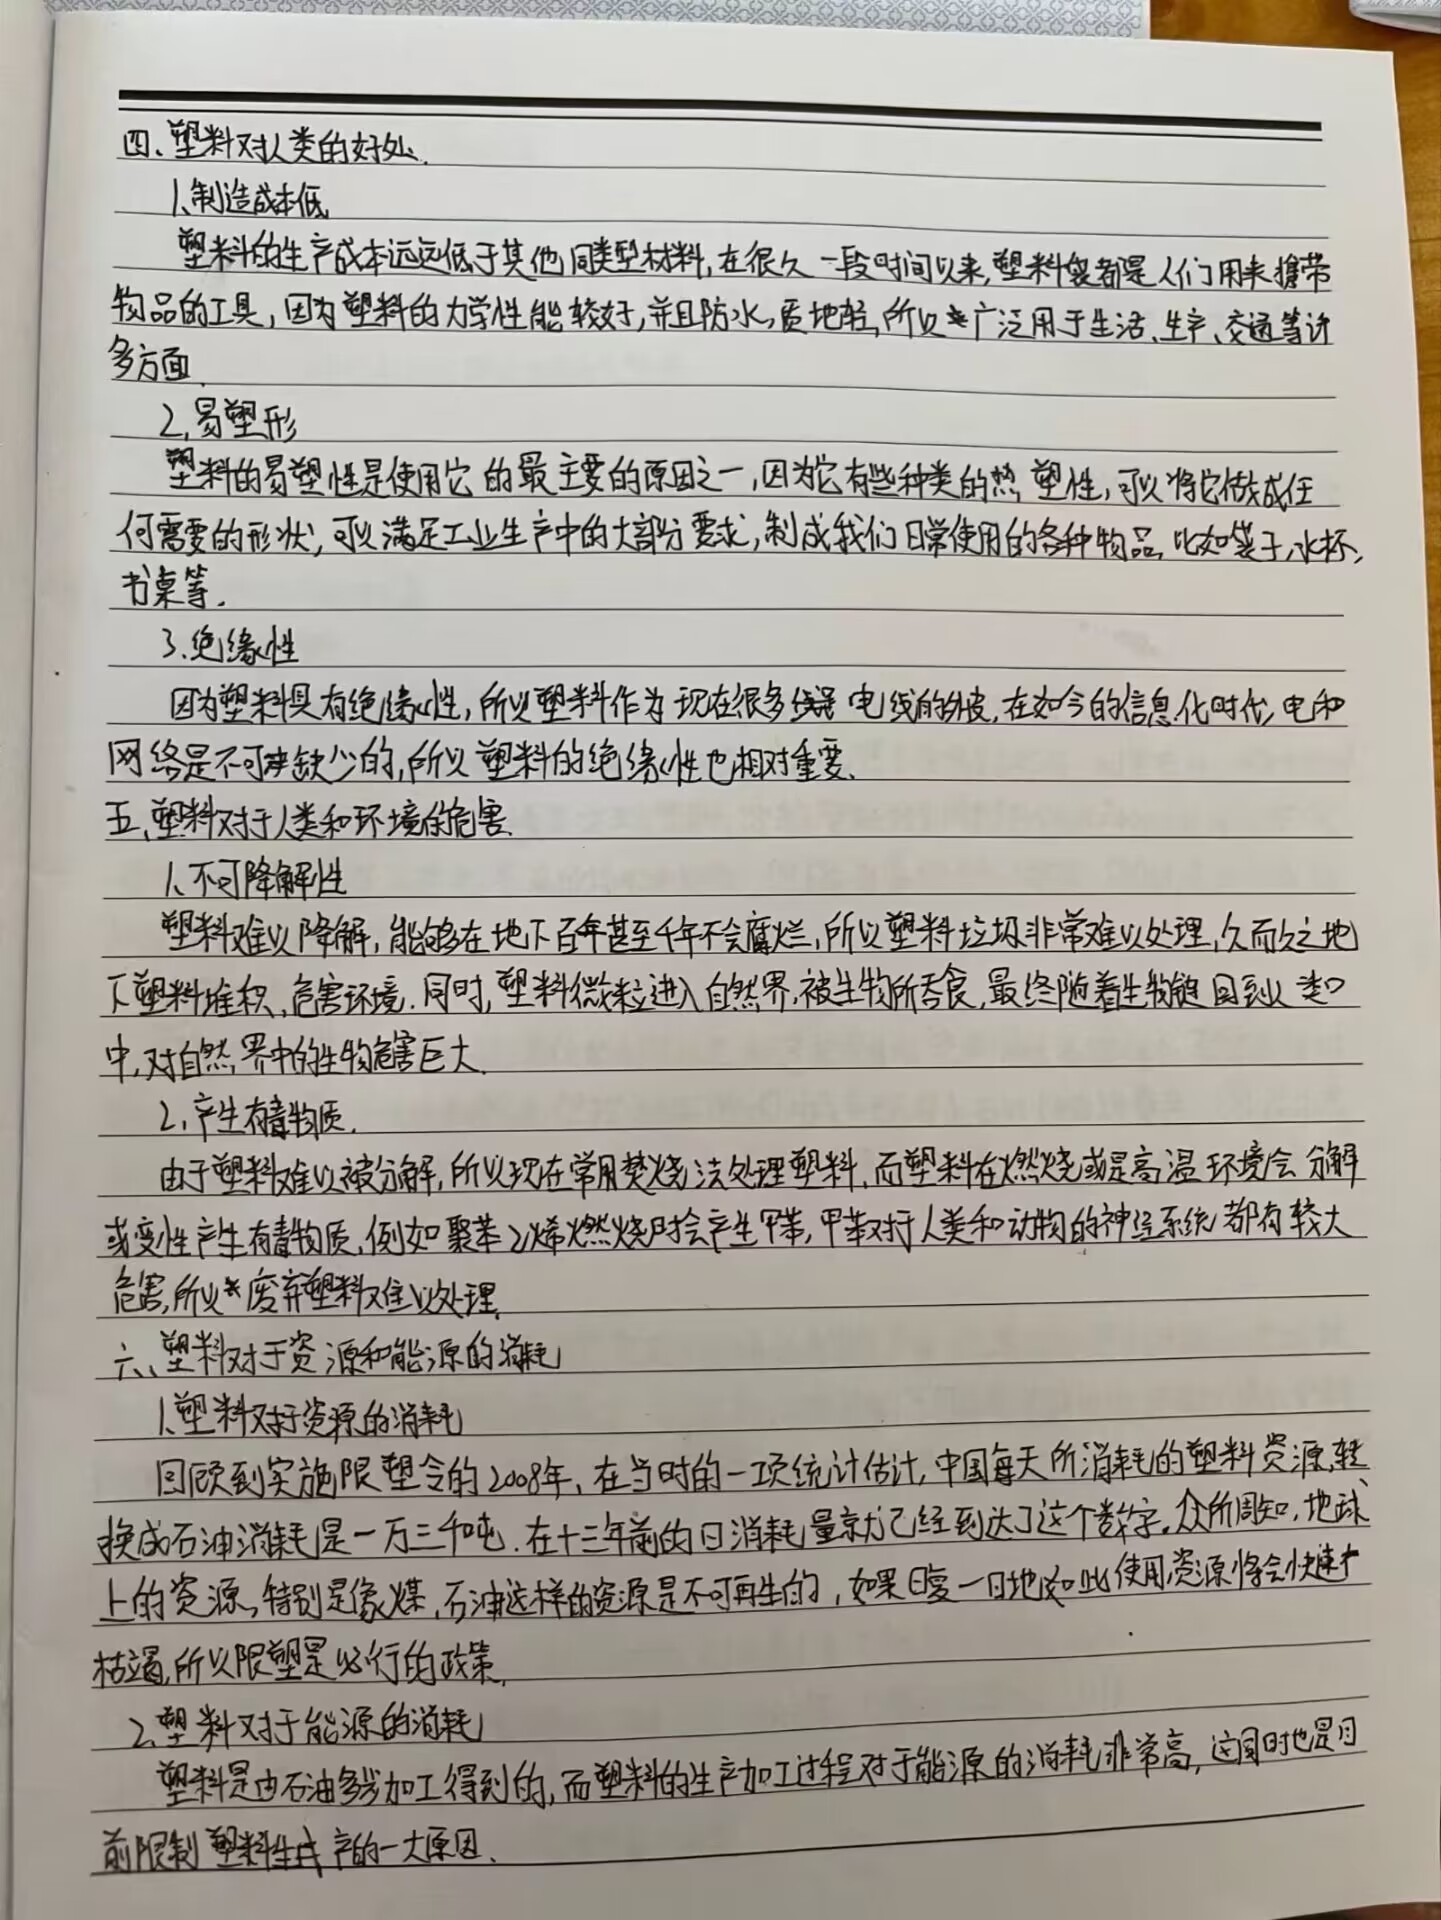 四、塑料对人类的好处.
1.制造成本低
塑料的生产成本远远低于其他同类型材料,在很久一段时间以来,塑料袋都是人们用来携带
物品的工具,因为塑料的力学性能较好,并且防水,质地轻,所以广泛用于生活、生产、交通等许
多方面.
2.易塑形
塑料的易塑性是使用它的最主要的原因之一,因为它有些种类的热塑性,可以将它做成任
何需要的形状,可以满足工业生产中的大部分要求,制成我们日常使用的各种物品,比如袋子,水杯,
书桌等.
3.绝缘性
因为塑料具有绝缘性,所以塑料作为现在很多 电线的外皮,在如今的信息化时代,电和
网络是不可缺少的,所以塑料的绝缘性也相对重要.
五、塑料对于人类和环境的危害.
1、不可降解性
塑料难以降解,能够在地下百年甚至千年不会腐烂,所以塑料垃圾非常难以处理,久而久之地
下塑料堆积,危害环境.同时,塑料微粒进入自然界,被生物所吞食,最终随着生物链回到人类口
中,对自然界中的生物危害巨大.
2,产生有毒物质.
由于塑料难以被分解,所以现在常用焚烧法处理塑料,而塑料在燃烧或是高温环境会分解
或变性产生有毒物质,例如聚苯乙烯燃烧时会产生甲苯,甲苯对于人类和动物的神经系统都有较大
危害,所以废弃塑料难以处理.
六、塑料对于资源和能源的消耗
1.塑料对于资源的消耗
回顾到实施限塑令的2008年,在当时的一项统计估计,中国每天所消耗的塑料资源,转
换成石油消耗是一万三千吨.在十三年前的日消耗量就已经到达了这个数字。众所周知,地球
上的资源,特别是像煤,石油这样的资源是不可再生的,如果日复一日地如此使用,资源将会快速
枯竭,所以限塑是必行的政策.
2.塑料对于能源的消耗
塑料是由石油多步加工得到的,而塑料的生产加工过程对于能源的消耗非常高,这同时也是目
前限制塑料生产的一大原因.